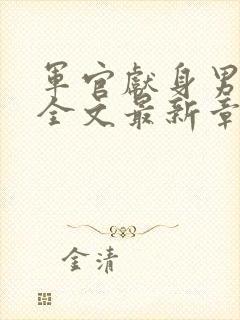 軍官獻身男
全文最新章
金清